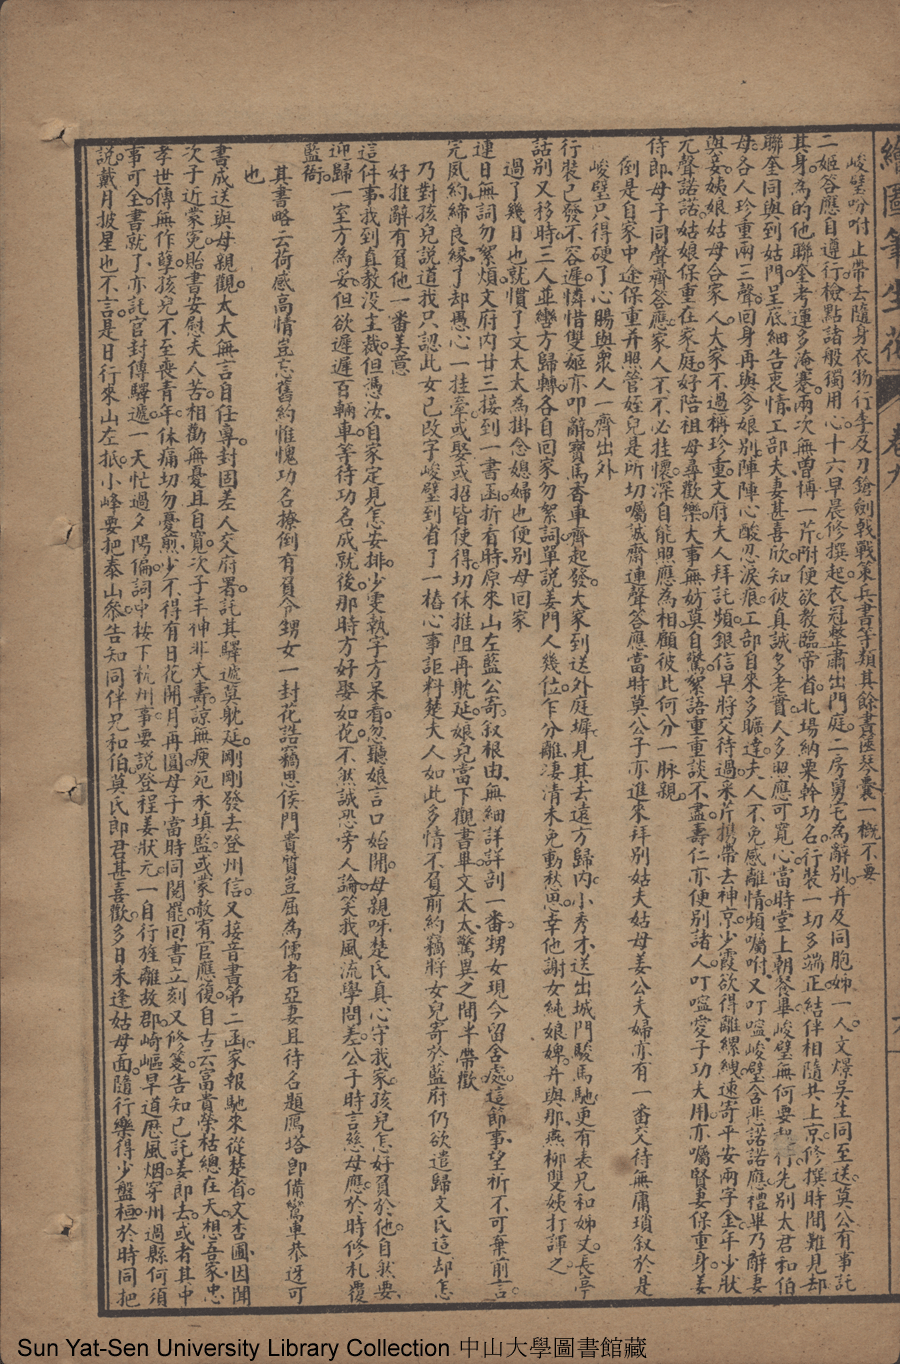 繪圖筆生花 卷九
峻壁吩咐止帶去隨身衣物行李及刀鎗劍戟戰策兵書等類其餘書匣琴囊一概不要
二姬答應自遵行檢點諸般獨用心十六早晨修撰起衣冠整肅出門庭二房舅宅為辭別并及同胞姊一人文㷡吳生同至送莫公有事託
其身為的他聯奎考運多淹蹇兩次無曾博一芹附便欲教臨帝省北場納粟幹功名行裝一切多端正結伴相隨其上京修撰時間難見却
聯奎同與到姑門呈底細告衷情工部夫妻甚喜欣知彼真誠多老實人多照應可寬心當時堂上朝餐畢峻壁無何要起行先別太君和伯
母各人珍重兩三聲回身再與爹娘別陣陣心酸忍淚痕工部自來多曠達夫人不免感離情頻囑咐又叮嚀峻壁含悲諾諾應禮畢乃辭妻
與妾姨娘姑母合家人大家不過稱珍重文府夫人拜託頻銀信早將交待過采芹携帶去神京少霞欲得離縲絏速寄平安兩字金年少狀
元聲諾諾姑娘保重在家庭好陪祖母尋歡樂大事無妨莫自驚絮語重重談不盡壽仁亦便別諸人叮嚀愛子功夫用亦囑賢妻保重身姜
侍郎母子同聲齊答應家人不必挂懷深自能照應為相顧彼此何分一脈親
倒是自家中途保重并照管姪兒是所切囑誠齋連聲答應當時莫公子亦進來拜別姑夫姑母姜公夫婦亦有一番交待無庸瑣叙於是
峻壁只得硬了心腸與衆人一齊出外
行裝已發不容遲憐惜雙姬亦叩辭寶馬香車齊起發大家到送外庭墀見其去遠方歸內小秀才送出城門駿馬馳更有表兄和姊丈長亭
話別又移時三人並轡方歸轉各自回家勿絮詞單說姜門人幾位乍分離淒清未免動愁思幸他謝女純娘婢并與那燕柳雙姨打諢之
過了幾日也就慣了文太太為掛念媳婦也便別母回家
連日無詞勿絮煩文府內廿三接到一書函折看時原來山左藍公寄叙根由無細詳詳剖一番甥女現今留舍處這節事望祈不可棄前言
完鳳約締良緣了却愚心一挂牽或娶或招皆使得切休推阻再躭延娘兒當下觀書畢文太太驚異之間半帶歡
乃對孩兒說道我只認此女已改字峻壁到省了一樁心事詎料楚大人如此多情不負前約竊將女兒寄於藍府仍欲遣歸文氏這却怎
好推辭有負他一番美意
這件事我到真教沒主裁但憑汝自家定見怎安排少雯執子方呆看忽聽娘言口始開母親呀楚氏真心守我家孩兒怎好負於他自然要
迎歸一室方為妥但欲遲遲百輛車等待功名成就後那時方好娶如花不然誠恐旁人論笑我風流學問差公子時言慈母應於時修札覆
藍衙
其書略云荷感高情豈忘舊約惟愧功名撩倒有負令甥女一封花誥竊思侯門貴質豈屈為儒者亞妻且待名題鴈塔即備鸞車恭迓可
也
書成送與母親觀太太無言自任專封固差人交府署託其驛遞莫躭延剛剛發去登州信又接音書第二函家報馳來從楚省文杏圃因聞
次子近蒙冤貽書安慰夫人苦相勸無憂且自寬次子丰神非夭壽諒無瘐死永填監或蒙赦宥官應復自古云富貴榮枯總在天想吾家忠
孝世傳無作孽孩兒不至喪青年休痛切勿憂煎少不得有日花開月再圓母子當時同閱罷回書立刻又修箋告知已託姜郎去或者其中
事可全書就了亦託官封傳驛遞一天忙過夕陽偏詞中按下杭州事要說登程姜狀元一自行旌離故郡崎嶇早道歷風烟穿州過縣何須
說戴月披星也不言是日行來山左抵小峰要把泰山參告知同伴兄和伯莫氏郎君甚喜歡多日未逢姑母面隨行樂得少盤桓於時同把
Sun Yat-Sen University Library Collection 中山大學圖書館藏